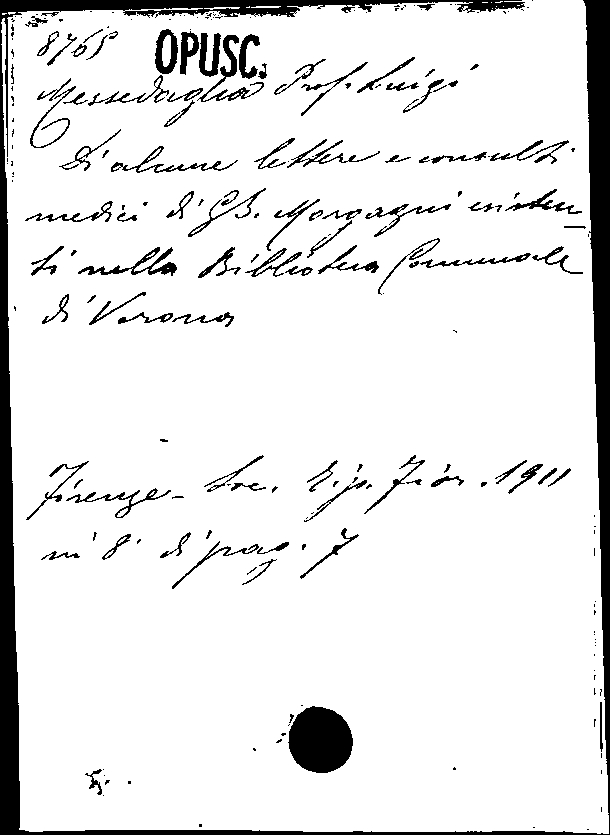 8765 OPUSC.
Messedaglia Prof. Luigi
Di alcune lettere e consulti
medici di G.B. Morgagni esisten-
ti nella Biblioteca Comunale
di Verona
Firenze - Soc. Tip. Fior. 1911
in 8° di pag. 7